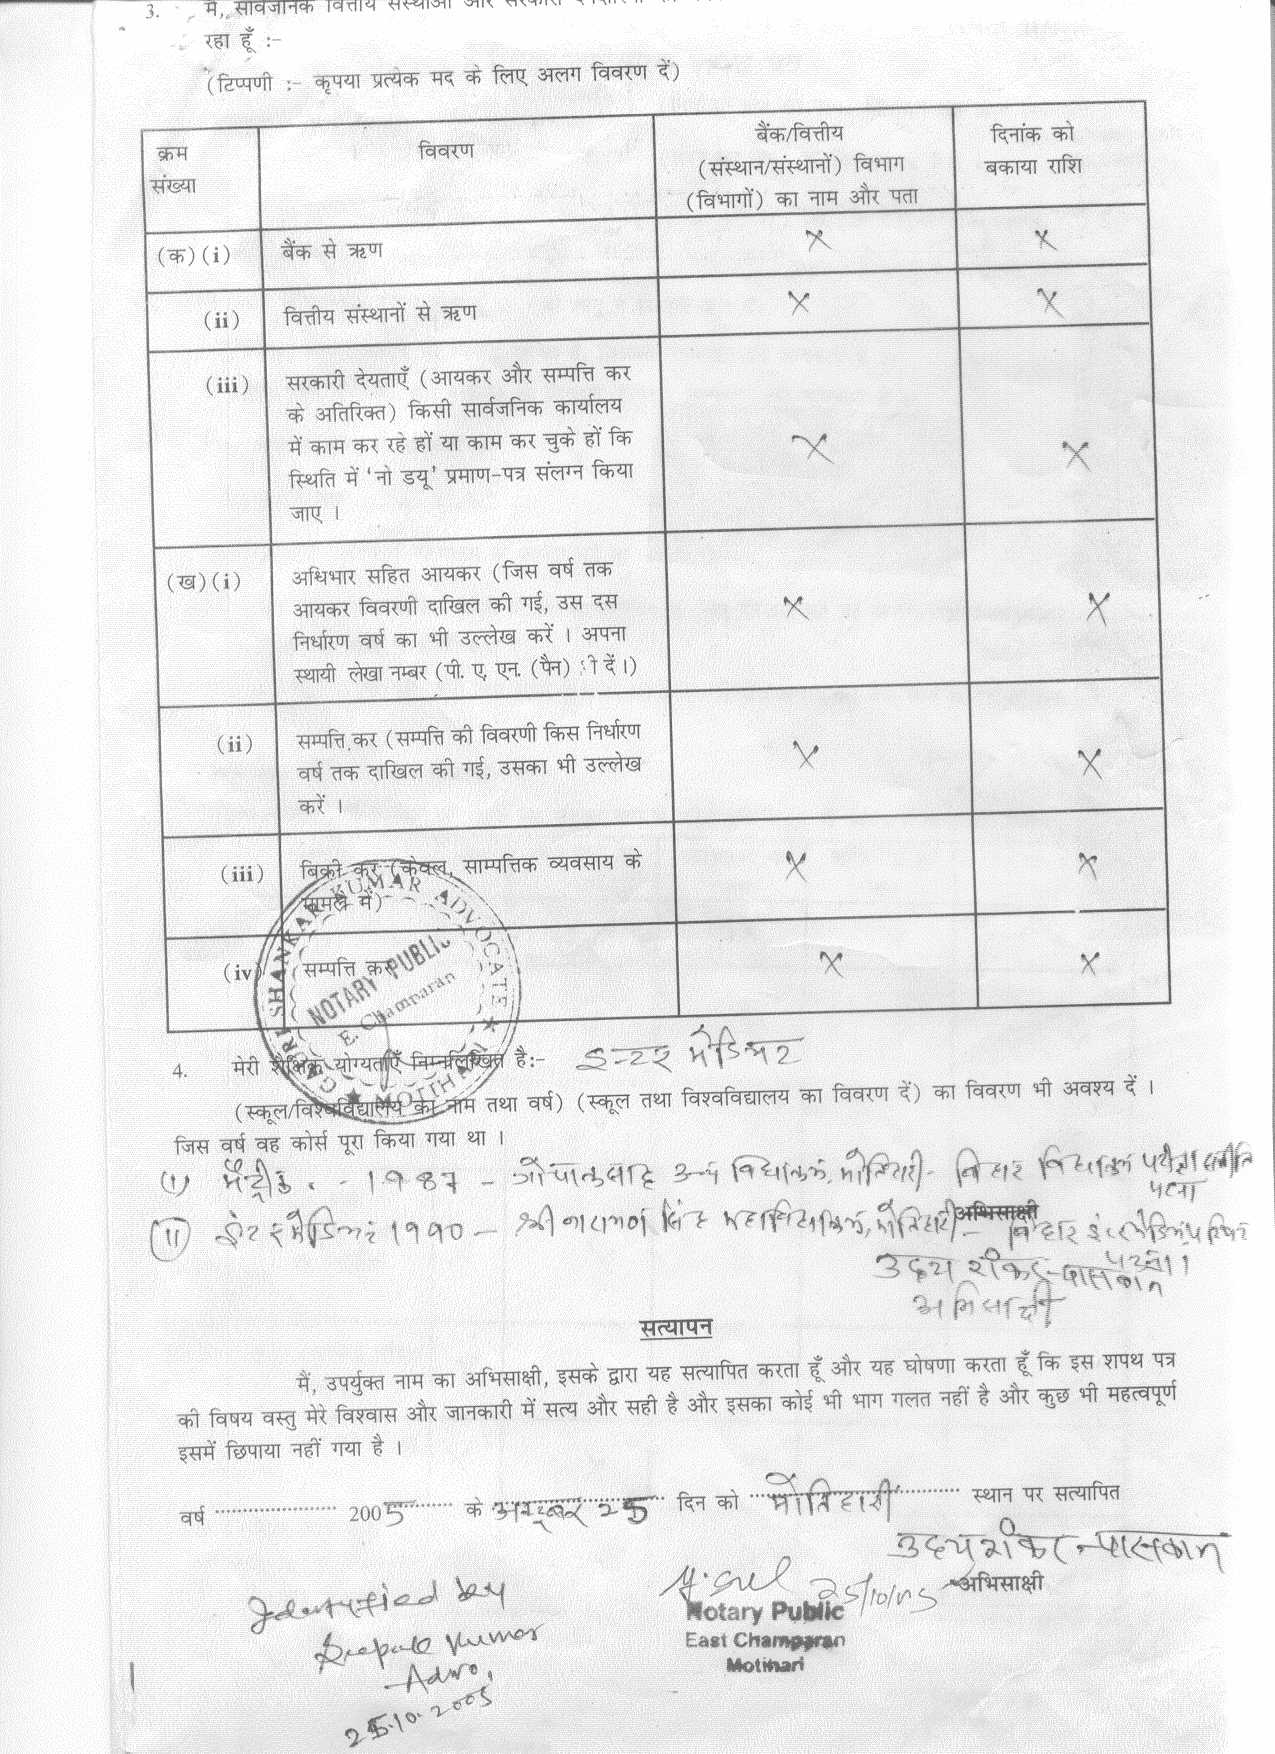 3. मैं, सार्वजनिक वित्तीय संस्थाओं और सरकारी
रहा हूँ :-
(टिप्पणी :- कृपया प्रत्येक मद के लिए अलग विवरण दें)
क्रम संख्या
विवरण
बैंक/वित्तीय
(संस्थान/संस्थानों) विभाग
(विभागों) का नाम और पता
दिनांक को
बकाया राशि
(क)(i) बैंक से ऋण X X
(ii) वित्तीय संस्थानों से ऋण X X
(iii) सरकारी देयताएँ (आयकर और सम्पत्ति कर
के अतिरिक्त) किसी सार्वजनिक कार्यालय
में काम कर रहे हों या काम कर चुके हों कि X X
स्थिति में 'नो डयू' प्रमाण-पत्र संलग्न किया
जाए ।
(ख)(i) अधिभार सहित आयकर (जिस वर्ष तक
आयकर विवरणी दाखिल की गई, उस दस X X
निर्धारण वर्ष का भी उल्लेख करें । अपना
स्थायी लेखा नम्बर (पी. ए. एन. (पैन) भी दें।)
(ii) सम्पत्ति कर (सम्पत्ति की विवरणी किस निर्धारण
वर्ष तक दाखिल की गई, उसका भी उल्लेख X X
करें ।
(iii) बिक्री कर (केवल, साम्पत्तिक व्यवसाय के X X
मामले में)
(iv) सम्पत्ति कर X X
GAURI SHANKAR KUMAR ADVOCATE ★ MOTIHARI ★
NOTARY PUBLIC
E. Champaran
4. मेरी शैक्षिक योग्यताएँ निम्नलिखित है:- इन्टरमीडिएट
(स्कूल/विश्वविद्यालय का नाम तथा वर्ष) (स्कूल तथा विश्वविद्यालय का विवरण दें) का विवरण भी अवश्य दें ।
जिस वर्ष वह कोर्स पूरा किया गया था ।
(I) मैट्रीक - 1987 - गोपालसाह उच्च विद्यालय, मोतिहारी - बिहार विद्यालय परीक्षा समिति
पटना
(II) इंटरमीडिएट 1990 - श्री नारायण सिंह महाविद्यालय, मोतिहारी - बिहार इंटरमीडिएट परिषद
पटना।
अभिसाक्षी
उदय शंकर पासवान
अभिसाक्षी
सत्यापन
मैं, उपर्युक्त नाम का अभिसाक्षी, इसके द्वारा यह सत्यापित करता हूँ और यह घोषणा करता हूँ कि इस शपथ पत्र
की विषय वस्तु मेरे विश्वास और जानकारी में सत्य और सही है और इसका कोई भी भाग गलत नहीं है और कुछ भी महत्वपूर्ण
इसमें छिपाया नहीं गया है ।
वर्ष .................... 2005 के अक्टूबर 25 दिन को मोतिहारी स्थान पर सत्यापित
उदय शंकर पासवान
अभिसाक्षी
25/10/05
Notary Public
East Champaran
Motihari
Identified by
Deepak Kumar
Advo.
25.10.2005